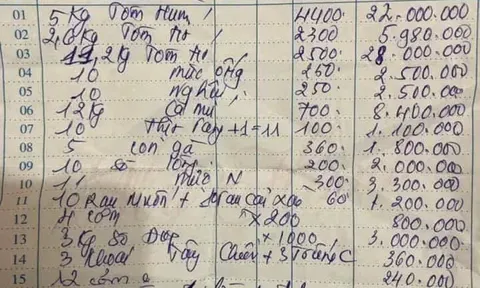 01 5 Kg Tôm Hùm 4400 22.000.000
02 2,6 Kg Tôm Hồ 2300 5.980.000
03 11,2 Kg Tôm 2500 28.000.000
04 10 mực ống 250 2.500.000
05 10 Nghêu 250 2.500.000
06 12 Kg Cá mú 700 8.400.000
07 10 +1=11 100 1.100.000
08 5 con gà 360 1.800.000
09 10 Sò 200 2.000.000
10 11 N 300 3.300.000
11 10 Rau Muốn + Rau Cải xào 60 1.200.000
12 4 cơm x200 800.000
13 3 Kg Sò x1000 3.000.000
14 3 Khoai Tây Chiên + 3 Trứng C 360.000
15 12 cơm 240.000